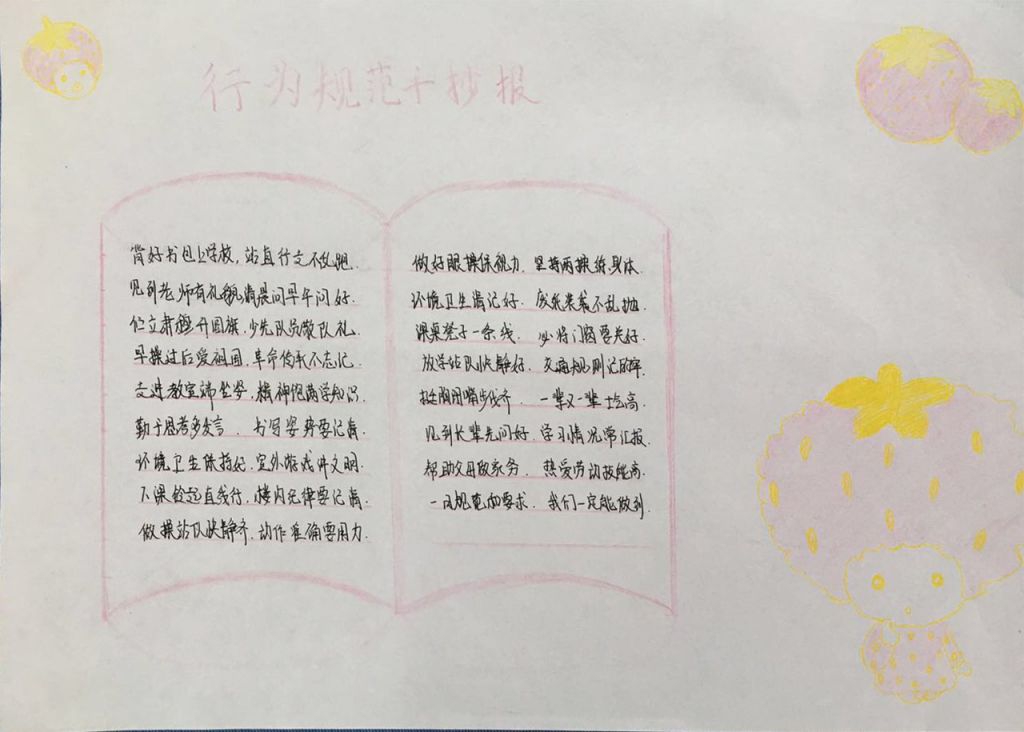 行为规范手抄报
背好书包上学校，站直行走不乱跑.
见到老师有礼貌，清晨问早午问好.
伫立肃穆升国旗，少先队员敬队礼.
早操过后爱祖国，革命传承不忘记.
走进教室端坐姿，精神饱满学知识.
勤于思考多发言，书写姿势要记清.
环境卫生保持好，室外游戏讲文明.
下课捡起直线行，楼内纪律要记清.
做操站队快静齐，动作准确要用力.
做好眼操保视力，坚持两操练身体.
环境卫生请记好，废纸杂袋不乱抛.
课桌凳子一条线，必将门窗要关好.
放学站队快静好，交通规则记的牢.
挺胸闭嘴步伐齐，一辈又一辈士气高.
见到长辈先问好，学习情况常汇报.
帮助父母做家务，热爱劳动技能高.
一日规范做要求，我们一定能做到.